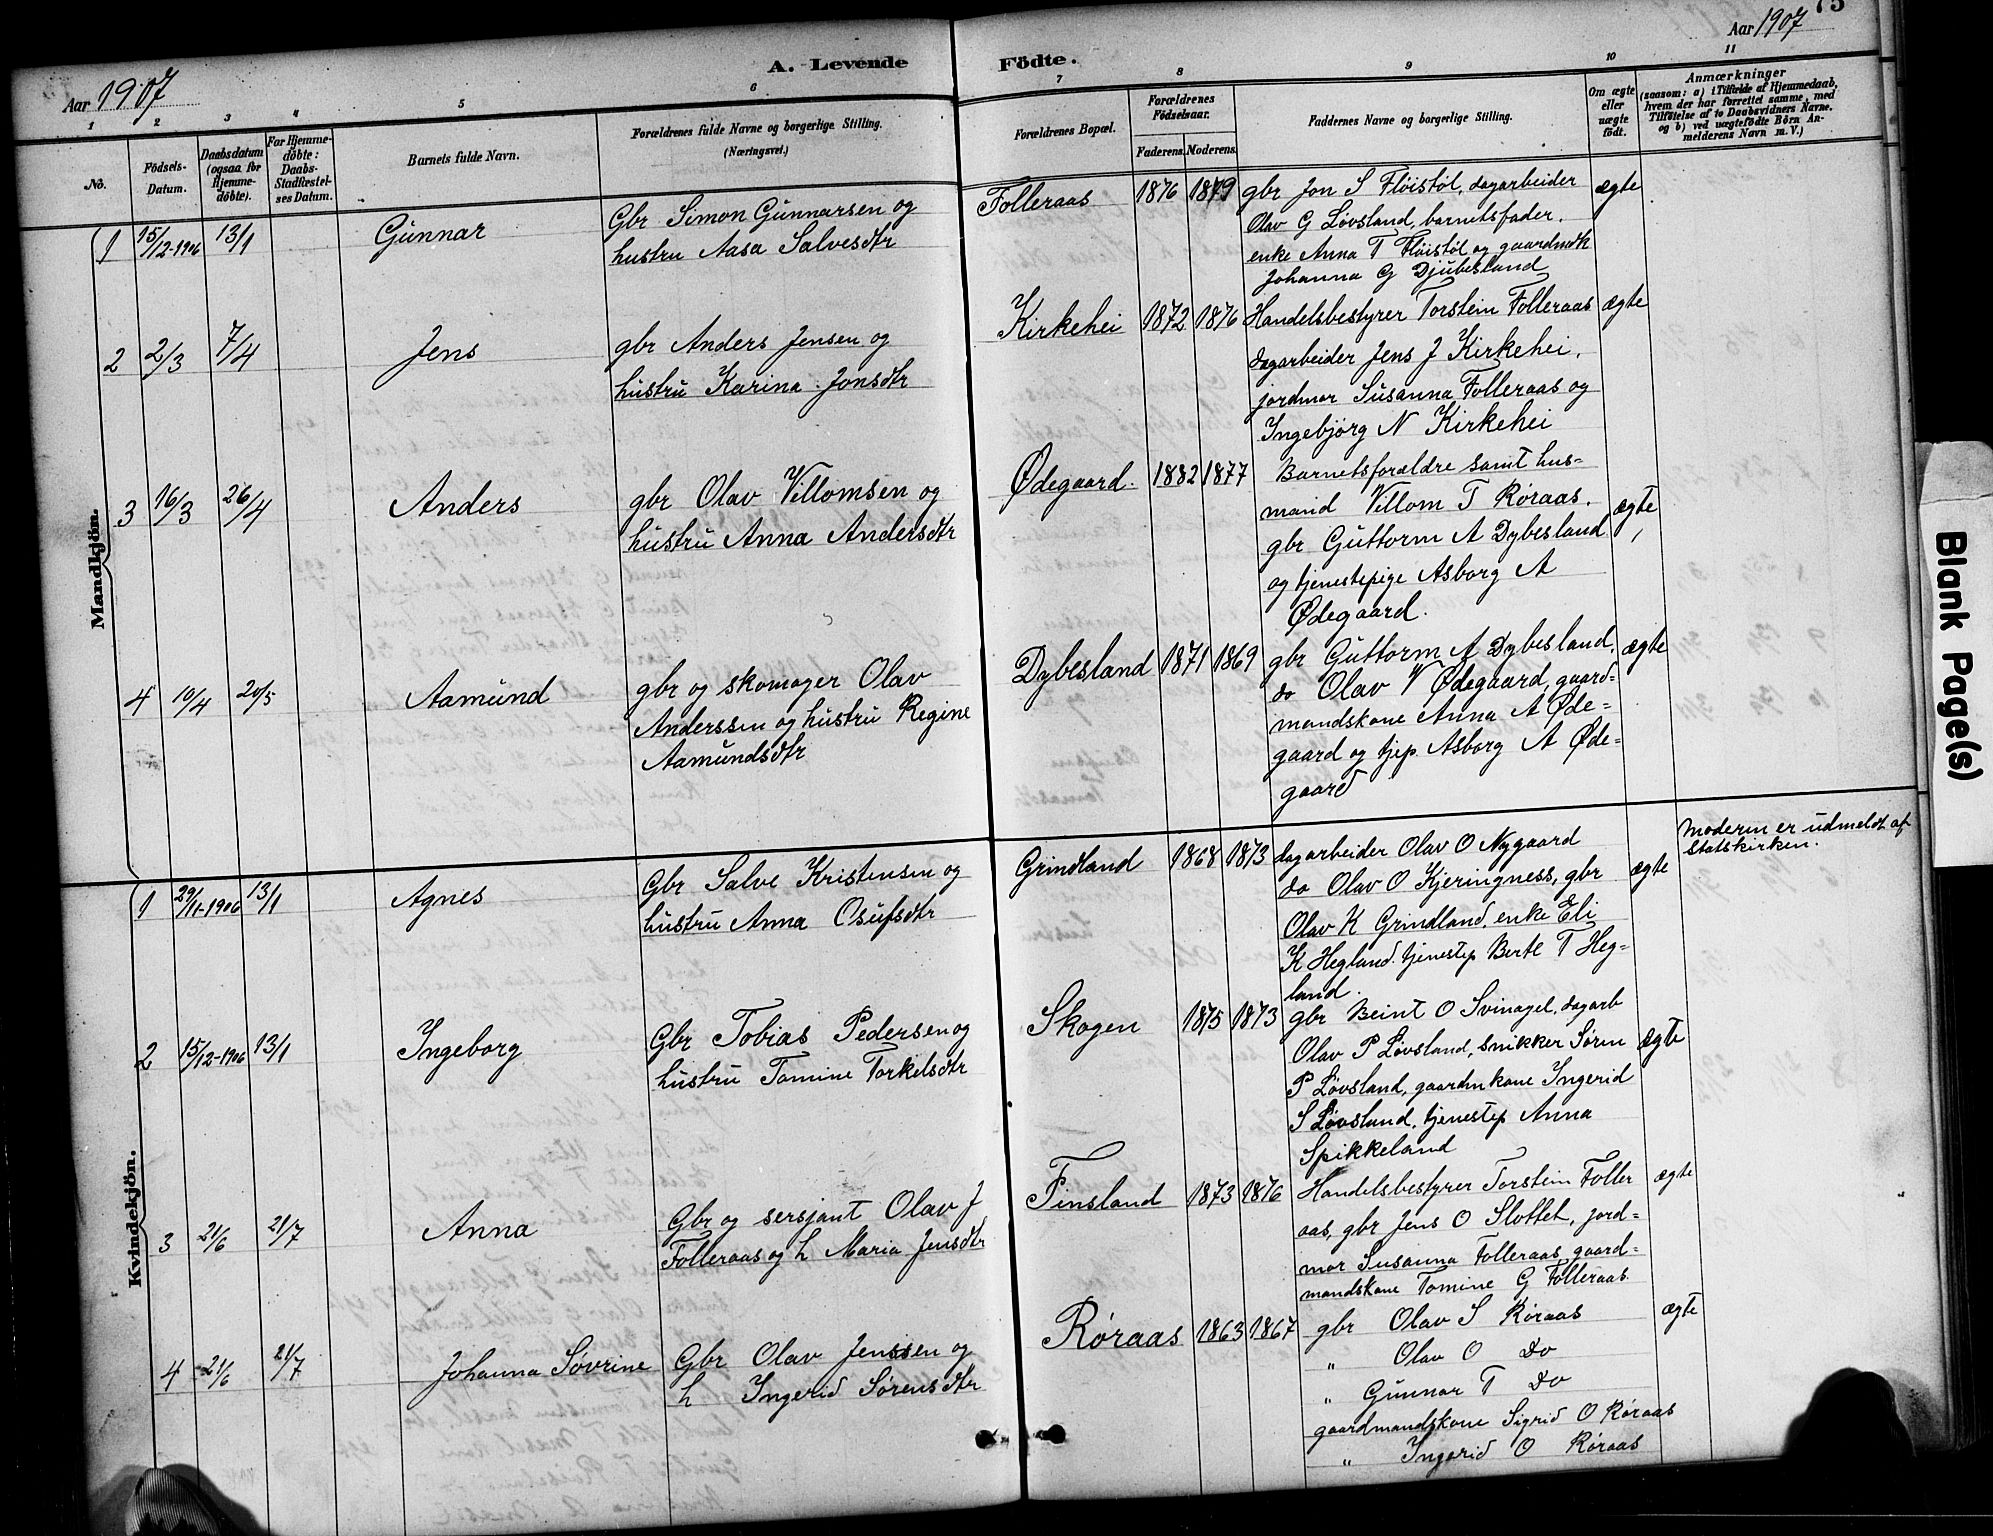 75
Aar 1907
A. Levende Födte.
Aar 1907
1 2 3 4 5 6 7 8 9 10 11
No.
Födsels-Datum.
Daabsdatum (ogsaa for Hjemme-döbte).
For Hjemme-döbte: Daabs-Stadfæstel-ses Datum.
Barnets fulde Navn.
Forældrenes fulde Navne og borgerlige Stilling.
(Næringsvei.)
Forældrenes Bopæl.
Forældrenes Födselsaar.
Faderens. Moderens.
Faddernes Navne og borgerlige Stilling.
Om ægte eller uægte födt.
Anmærkninger
(saasom: a) i Tilfælde af Hjemmedaab,
hvem der har forrettet samme, med
Tilföielse af to Daabsvidners Navne.
og b) ved uægtefödte Börn An-
melderens Navn m. V.)
Mandkjön.
1 15/12-1906 13/1 Gunnar
Gbr Simon Gunnarsen og
hustru Aasa Salvesdtr
Folleraas 1876 1879
gbr Jon S Fløistøl, dagarbeider
Olav G Løvsland, barnetsfader.
enke Anna T Fløistøl og gaardmdk
Johanna G Djubesland
ægte
2 2/3 7/4 Jens
gbr Anders Jensen og
hustru Karina Jonsdtr
Kirkehei 1872 1876
Handelsbestyrer Torstein Folleraas
dagarbeider Jens J Kirkehei,
jordmor Susanna Folleraas og
Ingebjørg N Kirkehei
ægte
3 16/3 26/4 Anders
gbr Olav Villomsen og
hustru Anna Andersdtr
Ødegaard. 1882 1877
Barnetsforældre samt hus-
mand Villom T Røraas.
gbr Guttorm A Dybesland
og tjenestepige Asborg A
Ødegaard.
ægte,
4 10/4 20/5 Aamund
gbr og skomager Olav
Anderssen og hustru Regine
Aamundsdtr
Dybesland 1871 1869
gbr Guttorm A Dybesland,
do Olav V Ødegaard, gaard=
mandskone Anna A Øde=
gaard og tjep. Asborg A Øde=
gaard
ægte
Kvindekjön.
1 29/11-1906 13/1 Agnes
Gbr Salve Kristensen og
hustru Anna Osufsdtr
Grindland 1868 1873
dagarbeider Olav O Nygaard
do Olav O Kjeringness, gbr
Olav K Grindland, enke Eli
K Hegland. tjenestep Berte T Heg=
land.
ægte
Moderen er udmeldt af
Statskirken.
2 15/12-1906 13/1 Ingeborg
Gbr Tobias Pedersen og
hustru Tomine Torkelsdtr
Skogen 1875 1873
gbr Beint O Svinagel, dagarb
Olav P Løvsland, snikker Søren
P Løvsland, gaardmkone Ingerid
S Løvsland, tjenestep Anna
Spikkeland
ægte
3 21/6 21/7 Anna
Gbr og sersjant Olav J
Folleraas og h Maria Jensdtr
Finsland 1873 1876
Handelsbestyrer Torstein Foller
aas, gbr Jens O Slottet, jord=
mor Susanna Folleraas, gaard=
mandskone Tomine G Folleraas.
ægte
4 21/6 21/7 Johanna Søvrine
Gbr Olav Jenssen og
h Ingerid Sørensdtr
Røraas 1863 1867
gbr Olav S Røraas
" Olav O Do
" Gunnar T Do
gaardmandskone Sigrid O Røraas
" Ingerid O Røraas
ægte
Blank Page(s)